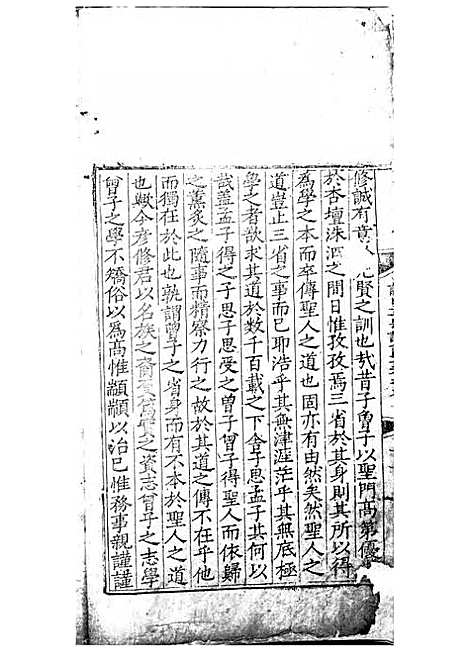 修誠有先賢之訓也哉昔子曾子以聖門高第優
於杏壇洙泗之間日惟孜孜焉三省於其身則其所以得
為學之本而卒傳聖人之道也固亦有由然矣然聖人之
道豈止三省之事而已耶浩乎其無津涯茫乎其無底極
學之者欲求其道於数千百載之下舍子思孟子其何以
哉盖孟子得之子思子思受之曾子曾子得聖人而依歸
之薰炙之隨事而精察力行之故於其道之傳不在乎他
而獨在於此也孰謂曾子之省身而有不本於聖人之道
也歟今彦修君以名族之裔之資志曾子之志學
曾子之學不矯俗以為高惟顓顓以治己惟務事親謹謹